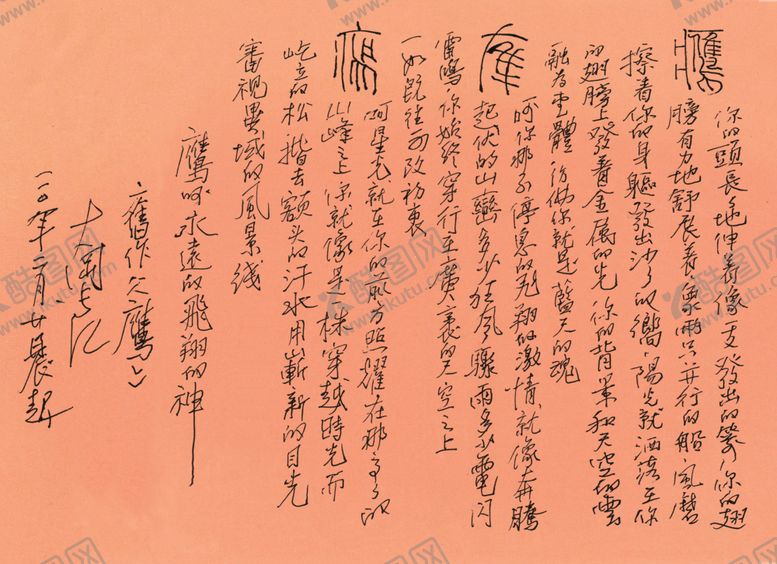 鷹
你的頭長長地伸着像一支發出的箭你的翅
膀有力地舒展着像兩只并行的船風磨
擦着你的身軀發出沙沙的響陽光就洒落在你
的翅膀上發着金属的光你的背景和天空的雲
融為壹體彷佛你就是藍天的魂
雁
呵你那不停息的飛翔的激情就像奔騰
起伏的山巒多少狂風驟雨多少電閃
雷鳴你始終穿行在廣袤的天空之上
一如既往不改初衷
啊星光就在你的前方照耀在那高高的
山峰之上你就像是一株穿越時光而
屹立的松揩去額头的汗水用嶄新的目光
審視異域的風景线
鷹呵永遠的飛翔的神
舊作《鷹》
年二月廿晨起